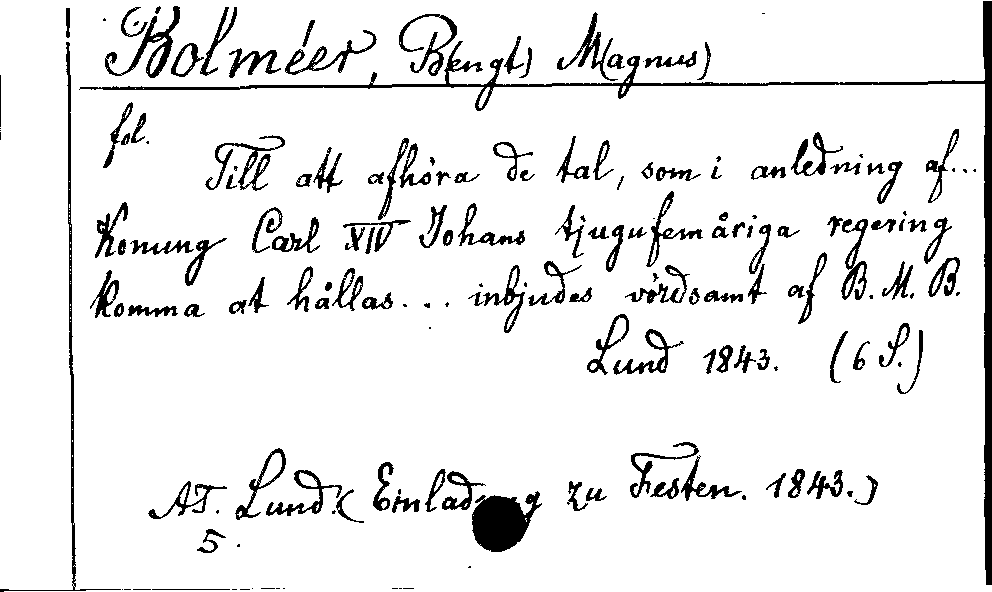 Bolméer, B(engt) M(agnus)
fol.
Till att afhöra de tal, som i anledning af...
Konung Carl XIV Johans tjugufemåriga regering
komma at hållas... inbjudes vördsamt af B. M. B.
Lund 1843. (6 S.)
AT. Lund. (Einladung zu Festen. 1843.)
5.